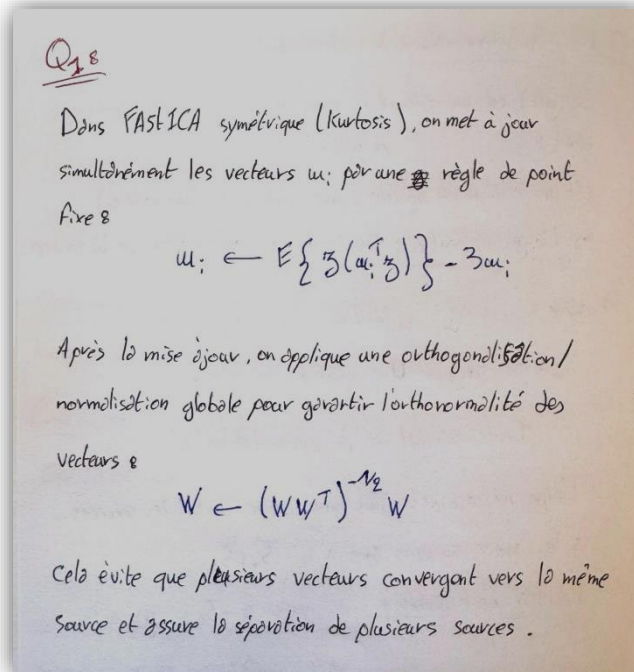 Q1 :
Dans FAStICA symétrique (Kurtosis), on met à jour
simultanément les vecteurs wi par une règle de point
fixe :
wi ← E{ z(wiᵀz) } - 3wi
Après la mise à jour, on applique une orthogonalisation/
normalisation globale pour garantir l'orthonormalité des
vecteurs :
W ← (WWᵀ)^-1/2 W
Cela évite que plusieurs vecteurs convergent vers la même
source et assure la séparation de plusieurs sources.